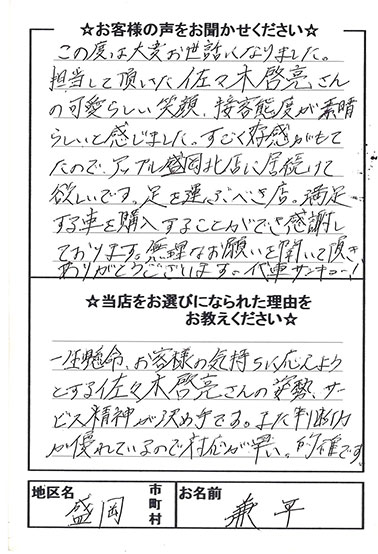 ☆お客様の声をお聞かせください☆
この度は大変お世話になりました。
担当して頂いた佐々木啓亮さん
の可愛らしい笑顔、接客態度が素晴
らしいと感じました。すごく好感がもて
たので、アップル盛岡北店に居続けて
欲しいです。足を運ぶべき店。満足
する車を購入することができ感謝し
ております。無理なお願いを聞いて頂き
ありがとうございます。代車サンキュー!
☆当店をお選びになられた理由を
お教えください☆
一生懸命、お客様の気持ちに応えよう
とする佐々木啓亮さんの姿勢、サー
ビス精神が決め手です。また判断力
が優れているので対応が早い。的確です。
地区名 盛岡 市町村 お名前 兼平